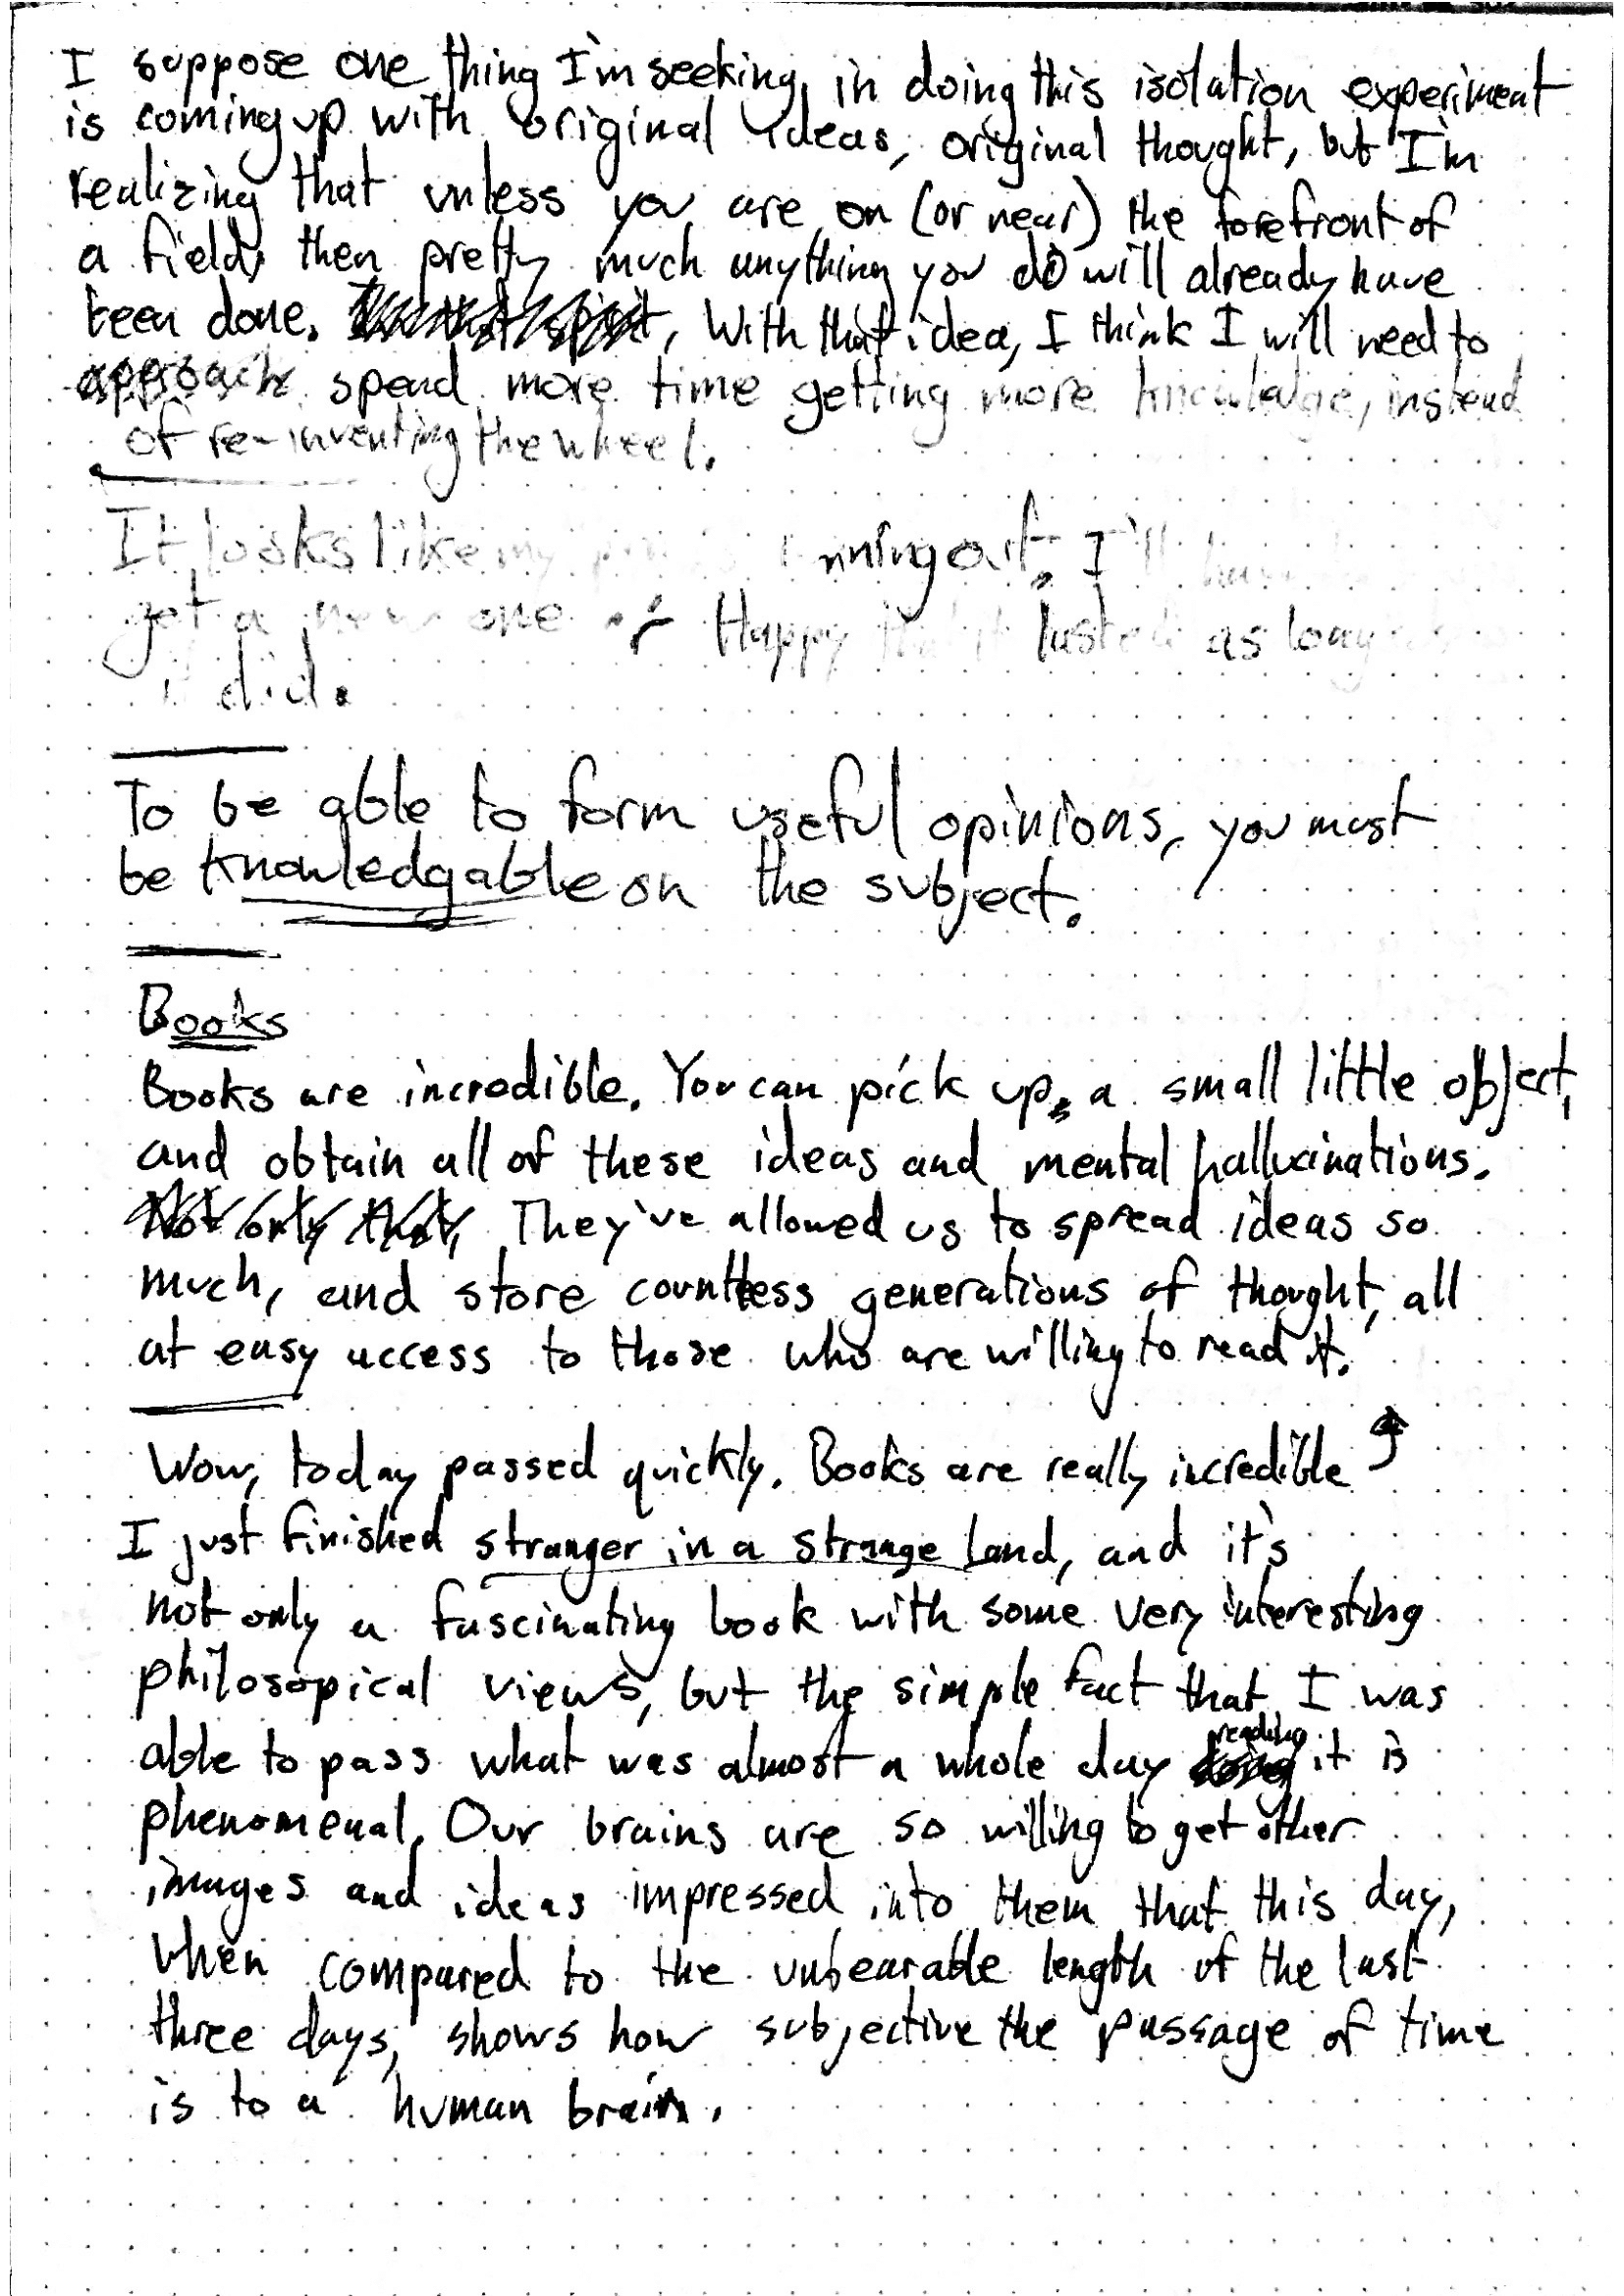 I suppose one thing I'm seeking, in doing this isolation experiment
is coming up with original ideas, original thought, but I'm
realizing that unless you are on (or near) the forefront of
a field, then pretty much anything you do will already have
been done. In that spirit, With that idea, I think I will need to
approach spend more time getting more knowledge, instead
of re-inventing the wheel.
It looks like my running out. I'll have
get a new one Happy that it lasted as long
it did.
To be able to form useful opinions, you must
be knowledgable on the subject.
Books
Books are incredible. You can pick up a small little object,
and obtain all of these ideas and mental hallucinations.
Not only that, They've allowed us to spread ideas so
much, and store countless generations of thought, all
at easy access to those who are willing to read it.
Wow, today passed quickly. Books are really incredible
I just finished stranger in a strange land, and it's
not only a fascinating book with some very interesting
philosopical views, but the simple fact that I was
able to pass what was almost a whole day reading it is
phenomenal. Our brains are so willing to get other
images and ideas impressed into them that this day,
when compared to the unbearable length of the last
three days, shows how subjective the passage of time
is to a human brain.